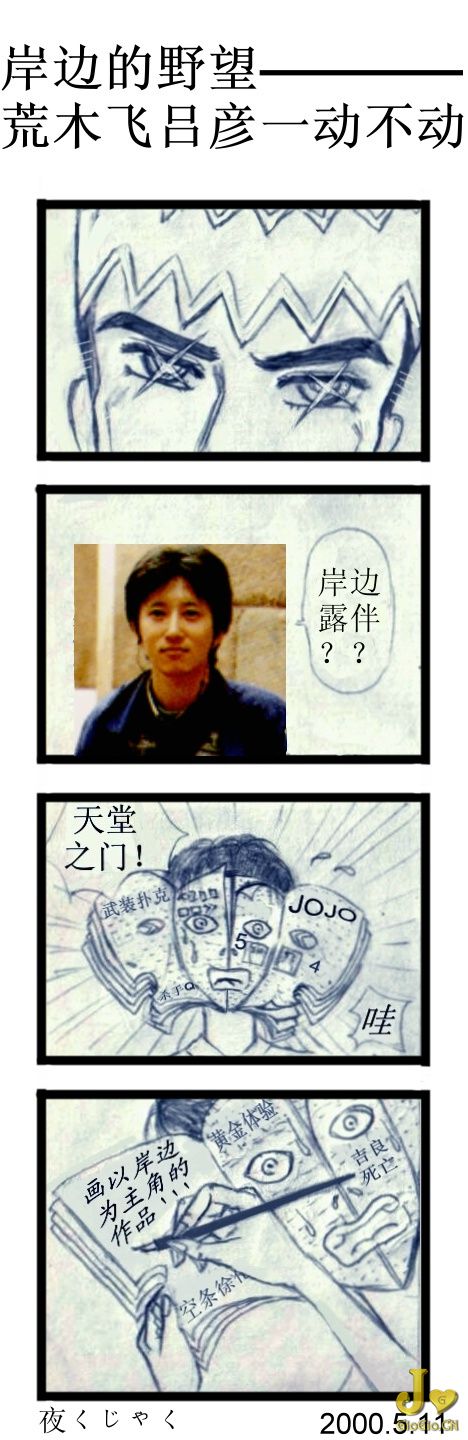 岸边的野望————
荒木飞吕彦一动不动
岸边
露伴
？？
天堂
之门！
武装扑克
JOJO
5
4
杀手Q
哇
黄金体验
画以岸边
为主角的
作品！！！
吉良
死亡
空条徐
夜くじゃく
2000.5.11
JoJo.CN